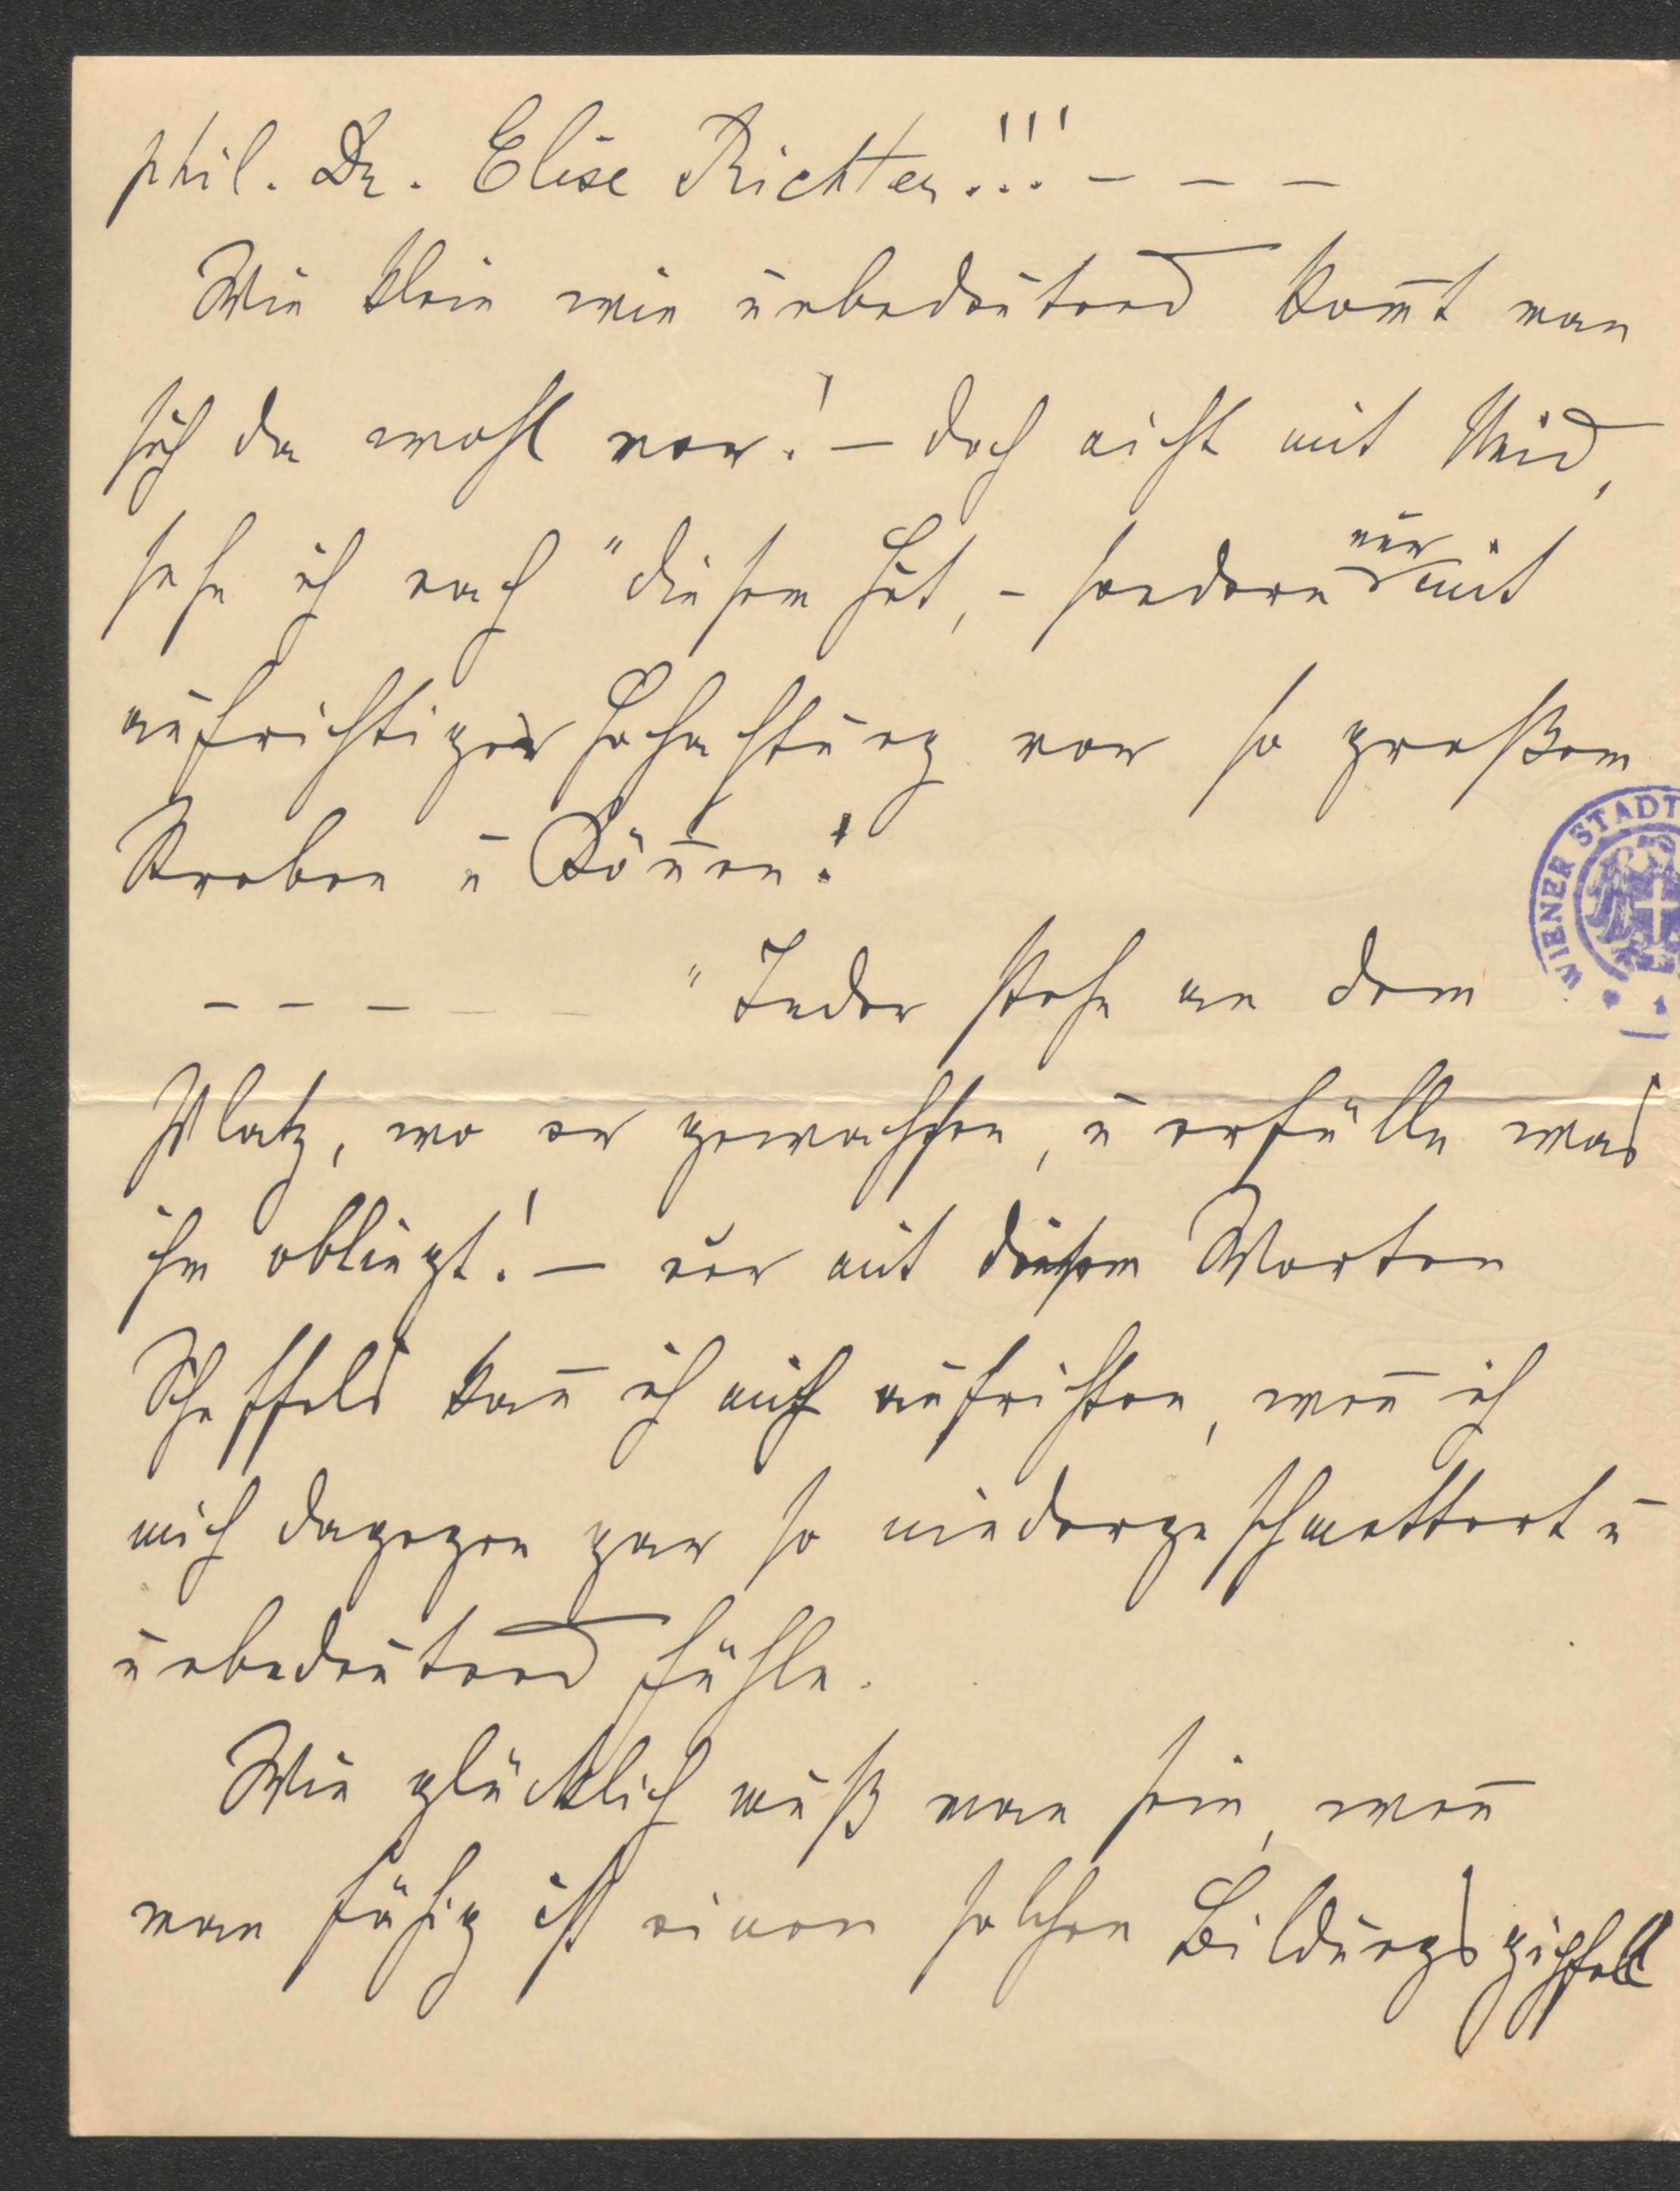 phil. Dr. Elise Richter!!! – – –
Wie klein wie unbedeutend kom̅t man
sich da wohl vor! – doch nicht mit Neid,
sehe ich nach "diesem Hut, – sondern nur mit
aufrichtiger Hochachtung vor so großem
Streben u Kön̅en!
– – – – – "Jeder stehe an dem
Platz, wo er gewachsen, u erfülle was
ihm obliegt! – nur mit diesen Worten
Scheffels kan̅ ich mich aufrichten, wen̅ ich
mich dagegen gar so niedergeschmettert u
unbedeutend fühle.
Wie glücklich muß man sein, wen̅
man fähig ist einen solchen Bildungsgipfel
WIENER STADT